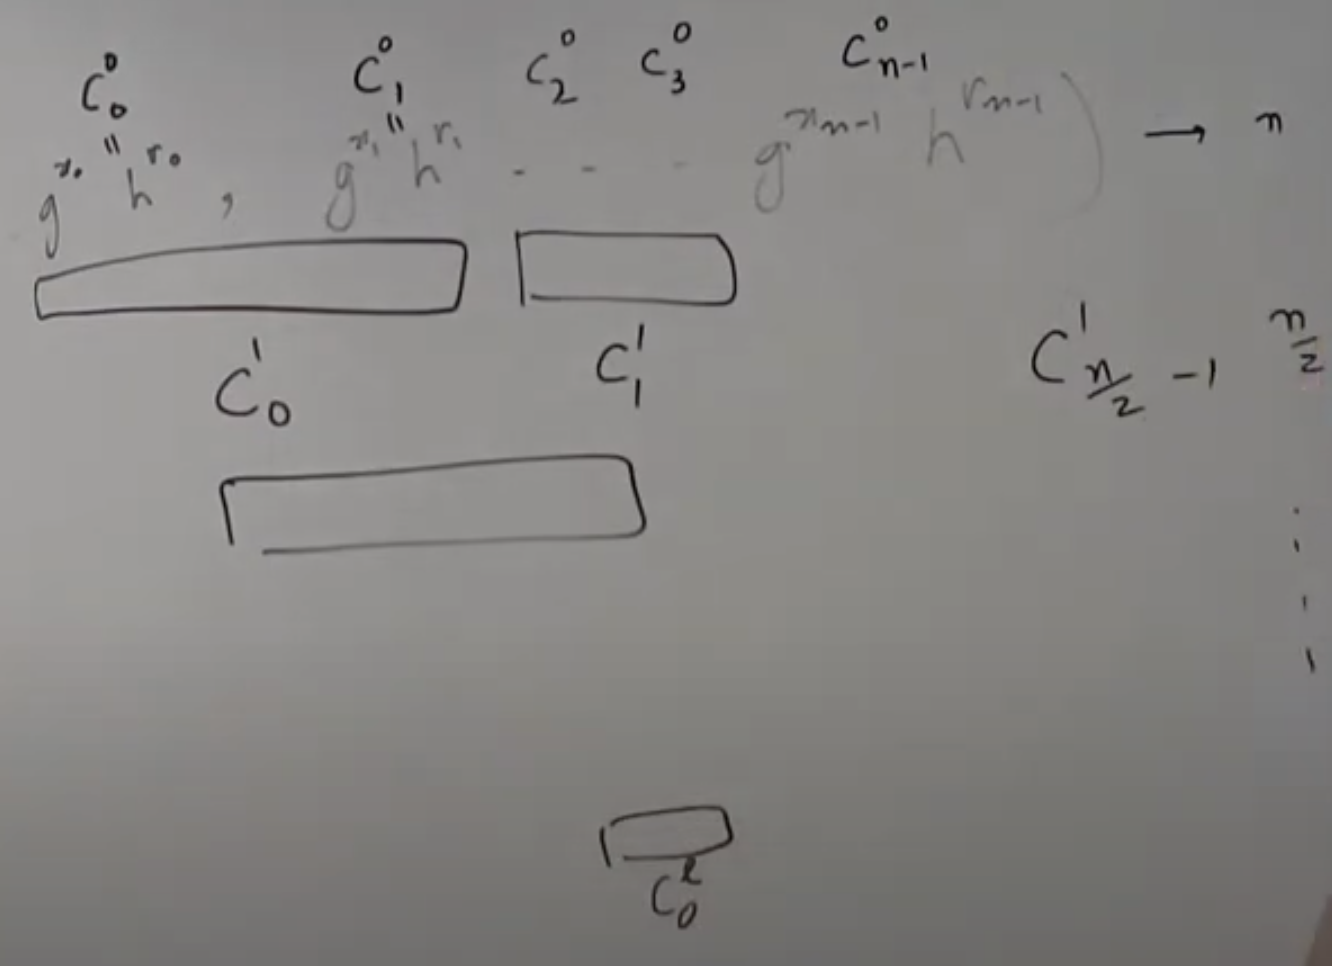 C₀⁰ C₁⁰ C₂⁰ C₃⁰ Cₙ₋₁⁰
" "
g^{x₀} h^{r₀} , g^{x₁} h^{r₁} - - - - g^{x_{n-1}} h^{r_{n-1}} ) → n
C₀¹ C₁¹ C¹_{n/2 -1} n/2
C₀^l